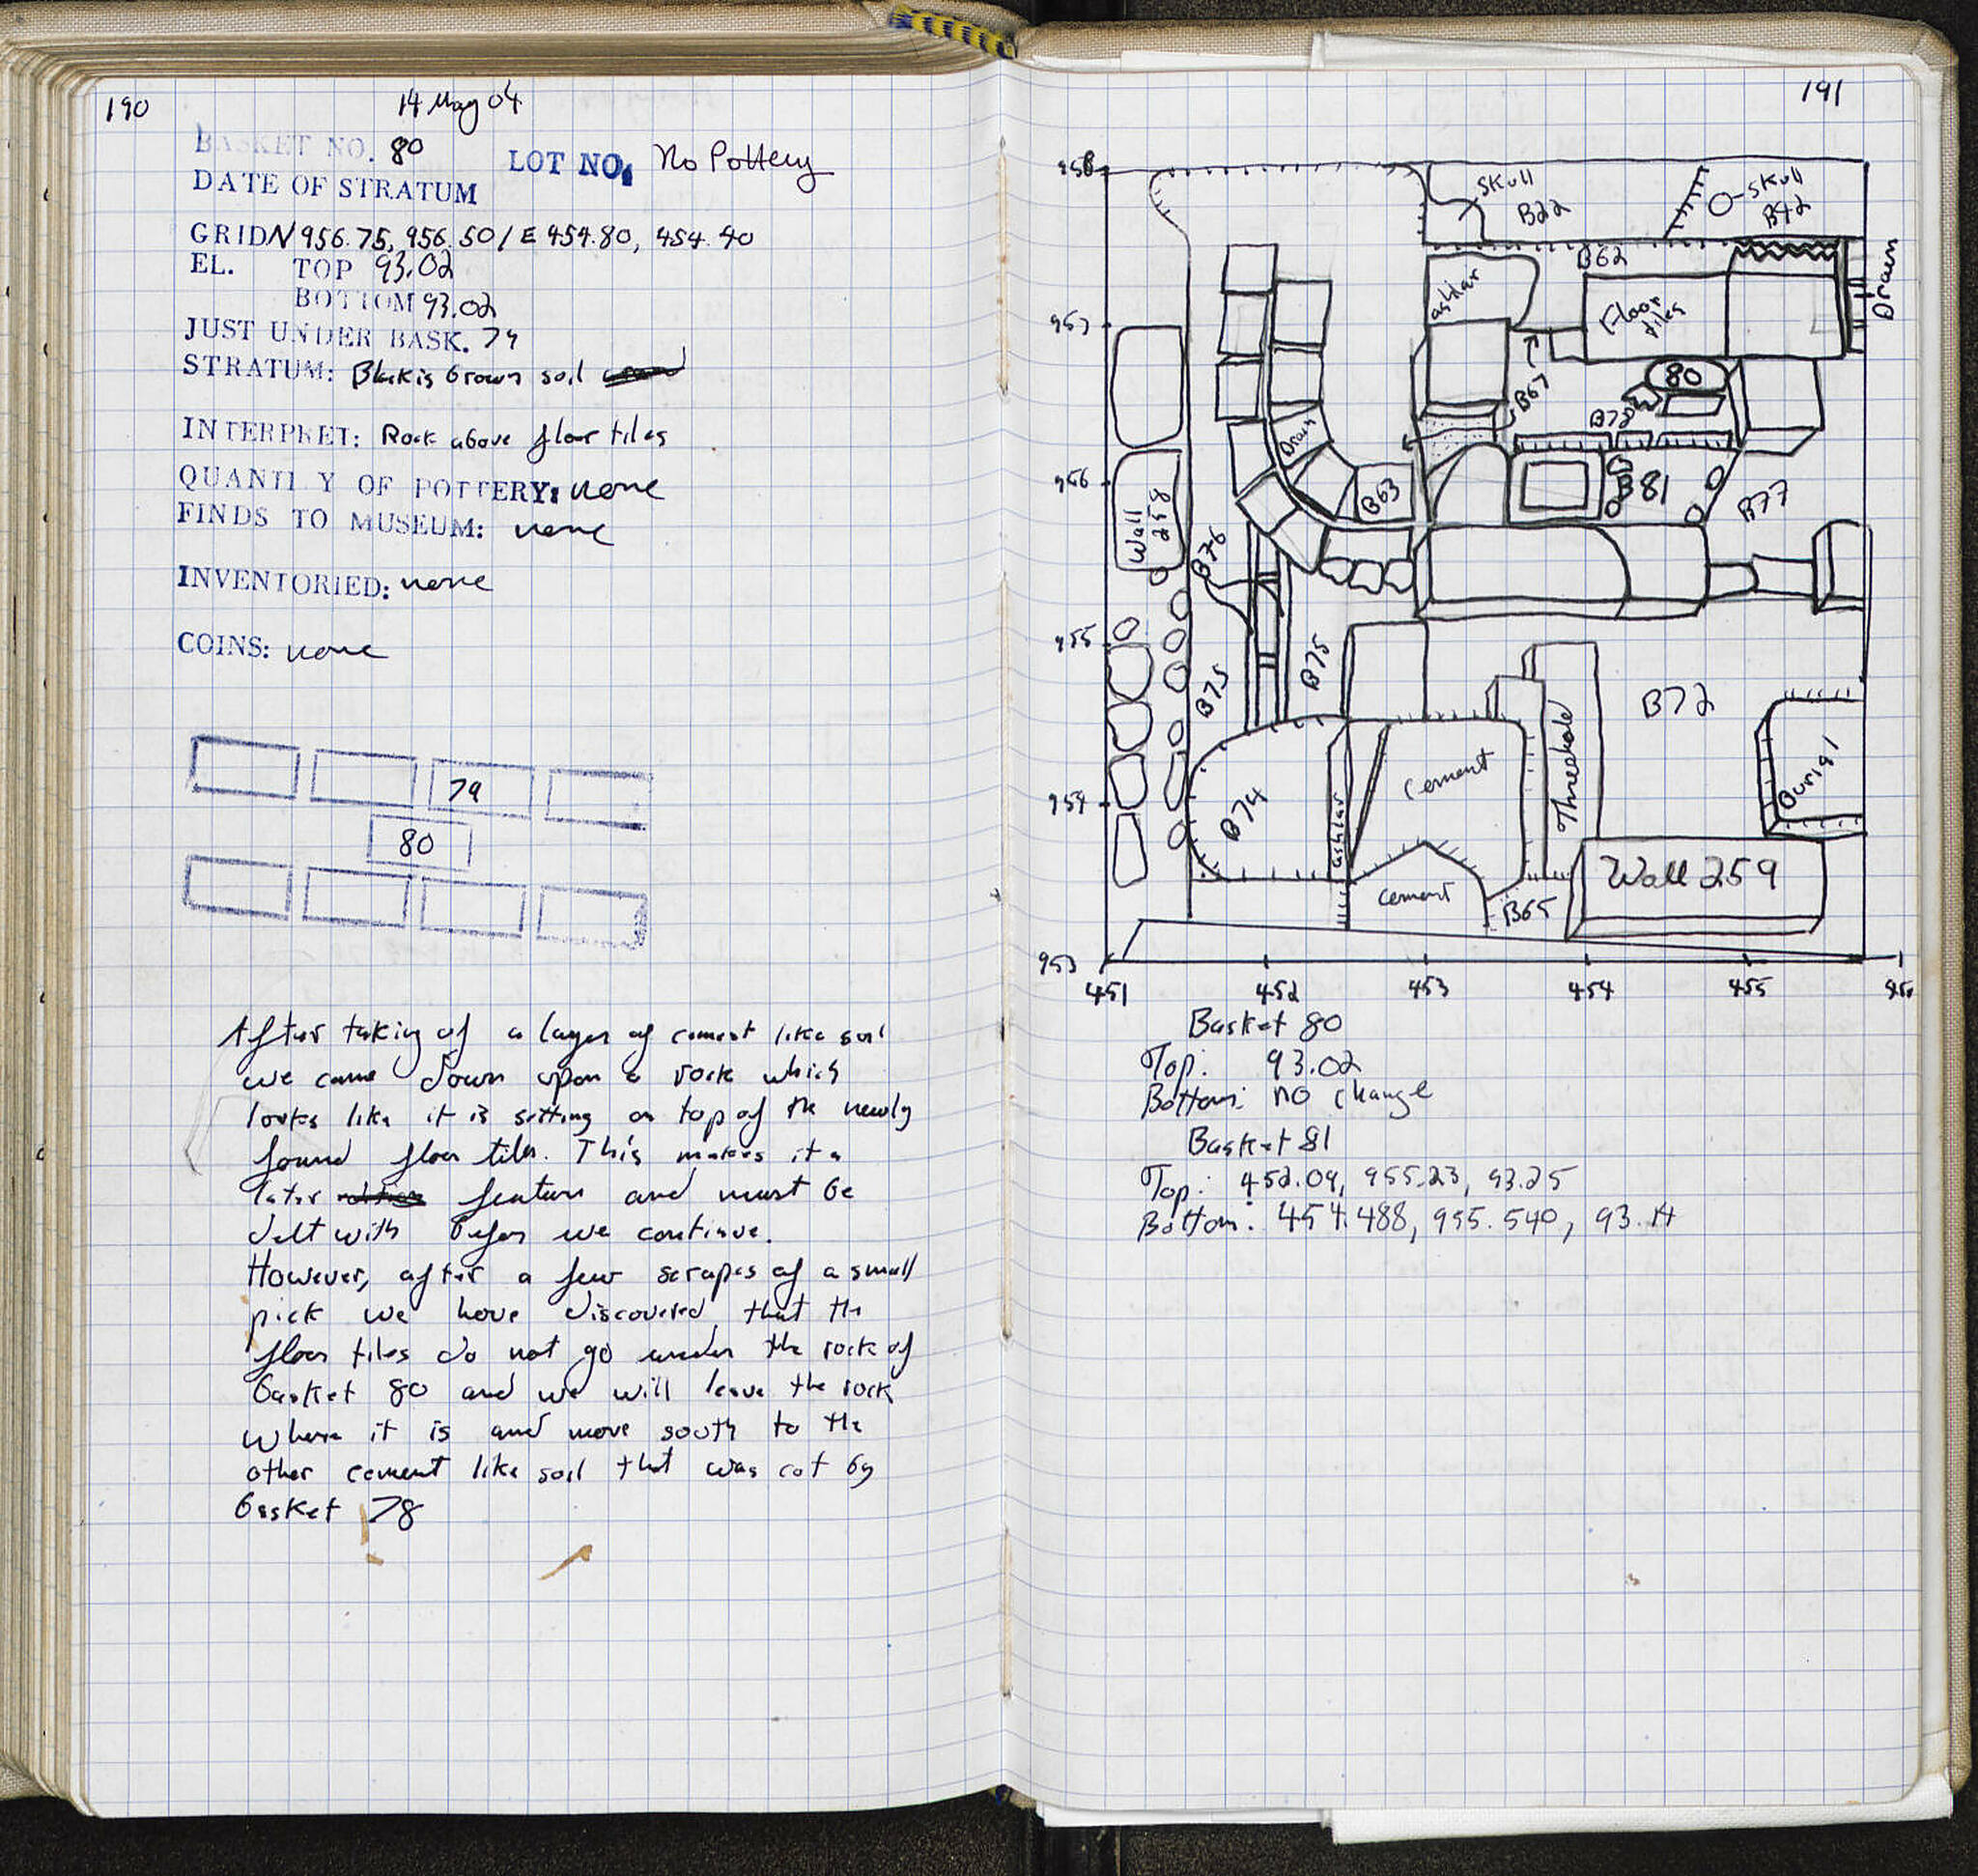 190
14 May 04
BASKET NO. 80
LOT NO. No Pottery
DATE OF STRATUM
GRID N 956.75, 956.50 / E 454.80, 454.40
EL. TOP 93.02
BOTTOM 93.02
JUST UNDER BASK. 79
STRATUM: Blakis brown soil
INTERPRET: Rock above floor tiles
QUANTITY OF POTTERY: none
FINDS TO MUSEUM: none
INVENTORIED: none
COINS: none
79
80
After taking of a layer of cement like soil
we came down upon a rock which
looks like it is sitting on top of the newly
found floor tiles. This makes it a
later feature and must be
delt with before we continue.
However, after a few scrapes of a small
pick we have discovered that the
floor tiles do not go under the rock of
basket 80 and we will leave the rock
where it is and move south to the
other cement like soil that was cut by
basket 78
191
958
Skull
B22
Skull
B42
B62
Drain
ashlar
Floor
tiles
957
80
B67
B78
Drain
956
B63
B81
B77
Wall
258
B76
955
B75
B75
B72
Threshold
Cement
Burial
954
B74
ashlar
Wall 259
cement
B65
953
451 452 453 454 455 456
Basket 80
Top: 93.02
Bottom: no change
Basket 81
Top: 452.09, 955.23, 93.25
Bottom: 454.488, 955.540, 93.14